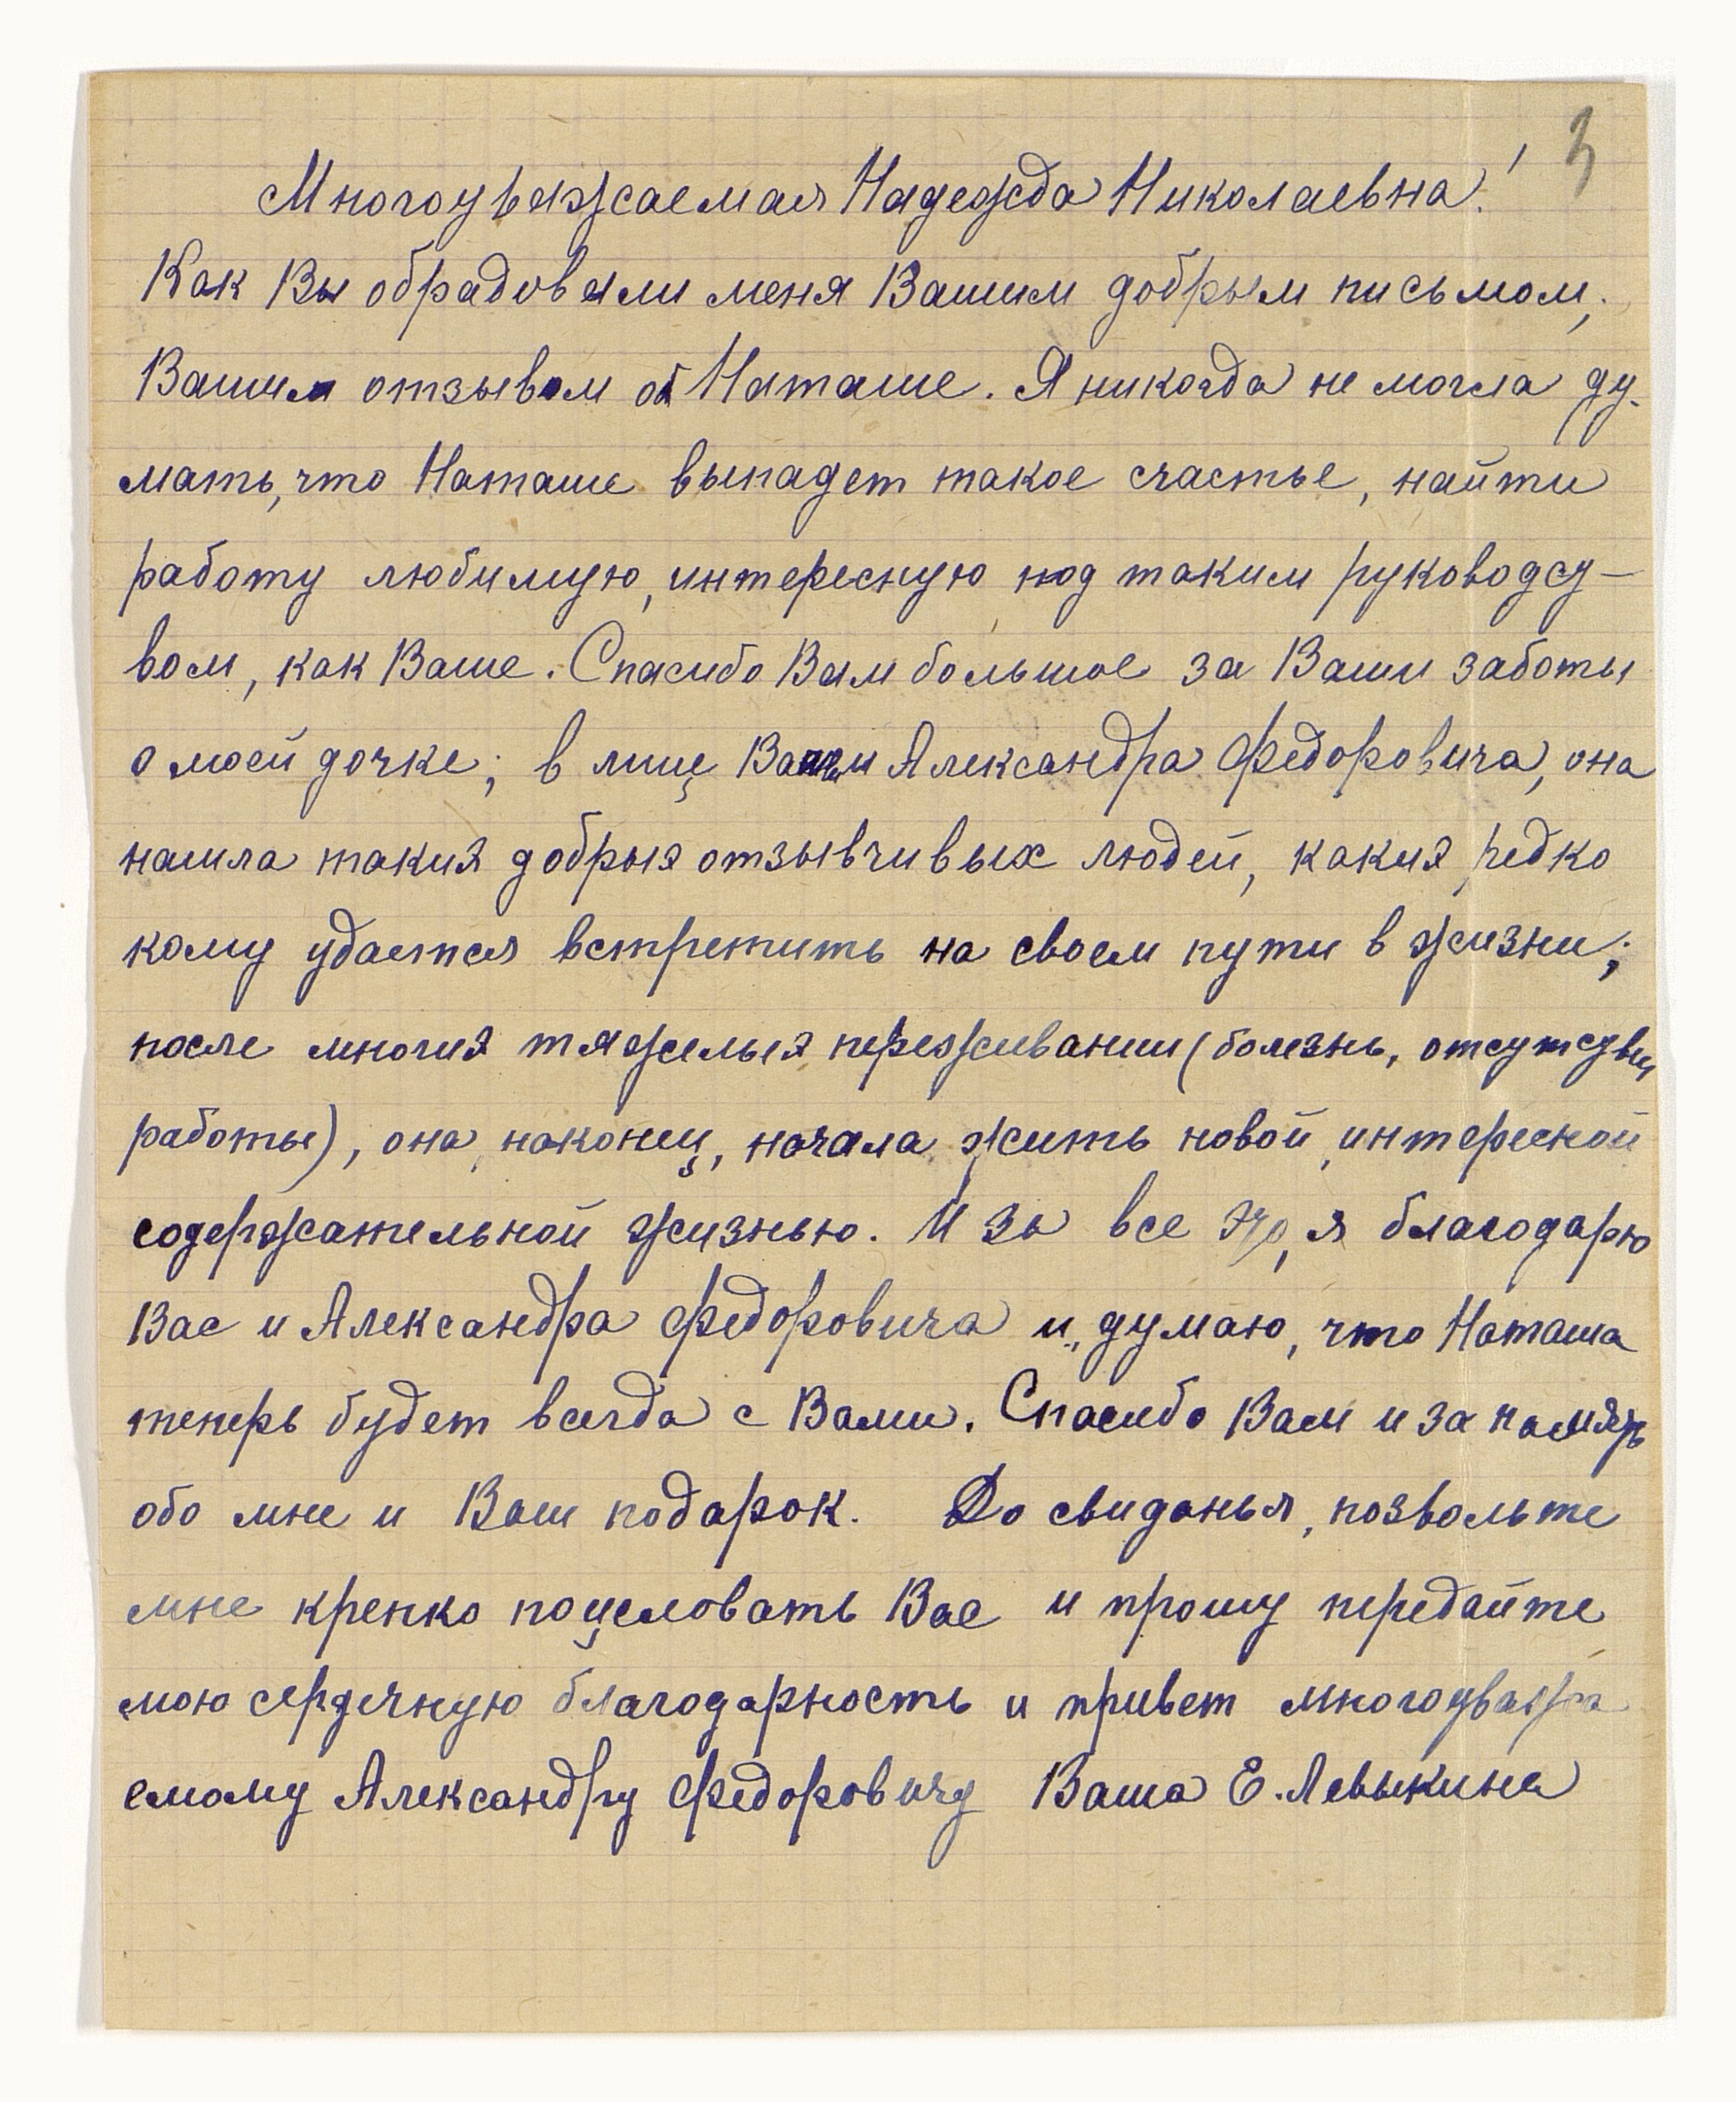 3
Многоуважаемая Надежда Николаевна!
Как Вы обрадовали меня Вашим добрым письмом,
Вашим отзывом об Наташе. Я никогда не могла ду-
мать, что Наташе выпадет такое счастье, найти
работу любимую, интересную под таким руководст-
вом, как Ваше. Спасибо Вам большое за Ваши заботы
о моей дочке; в лице Александра Федоровича, она
нашла такия добрыя отзывчивых людей, какия редко
кому удается встретить на своем пути в жизни;
после многия тяжелыя переживании (болезнь, отсутствие
работы), она, наконец, начала жить новой, интересной
содержательной жизнью. И за все это, я благодарю
Вас и Александра Федоровича и, думаю, что Наташа
теперь будет всегда с Вами. Спасибо Вам и за память
обо мне и Ваш подарок. До свиданья, позвольте
мне крепко поцеловать Вас и прошу передайте
мою сердечную благодарность и привет многоуважа
емому Александру Федоровичу Ваша Е. Левыкина